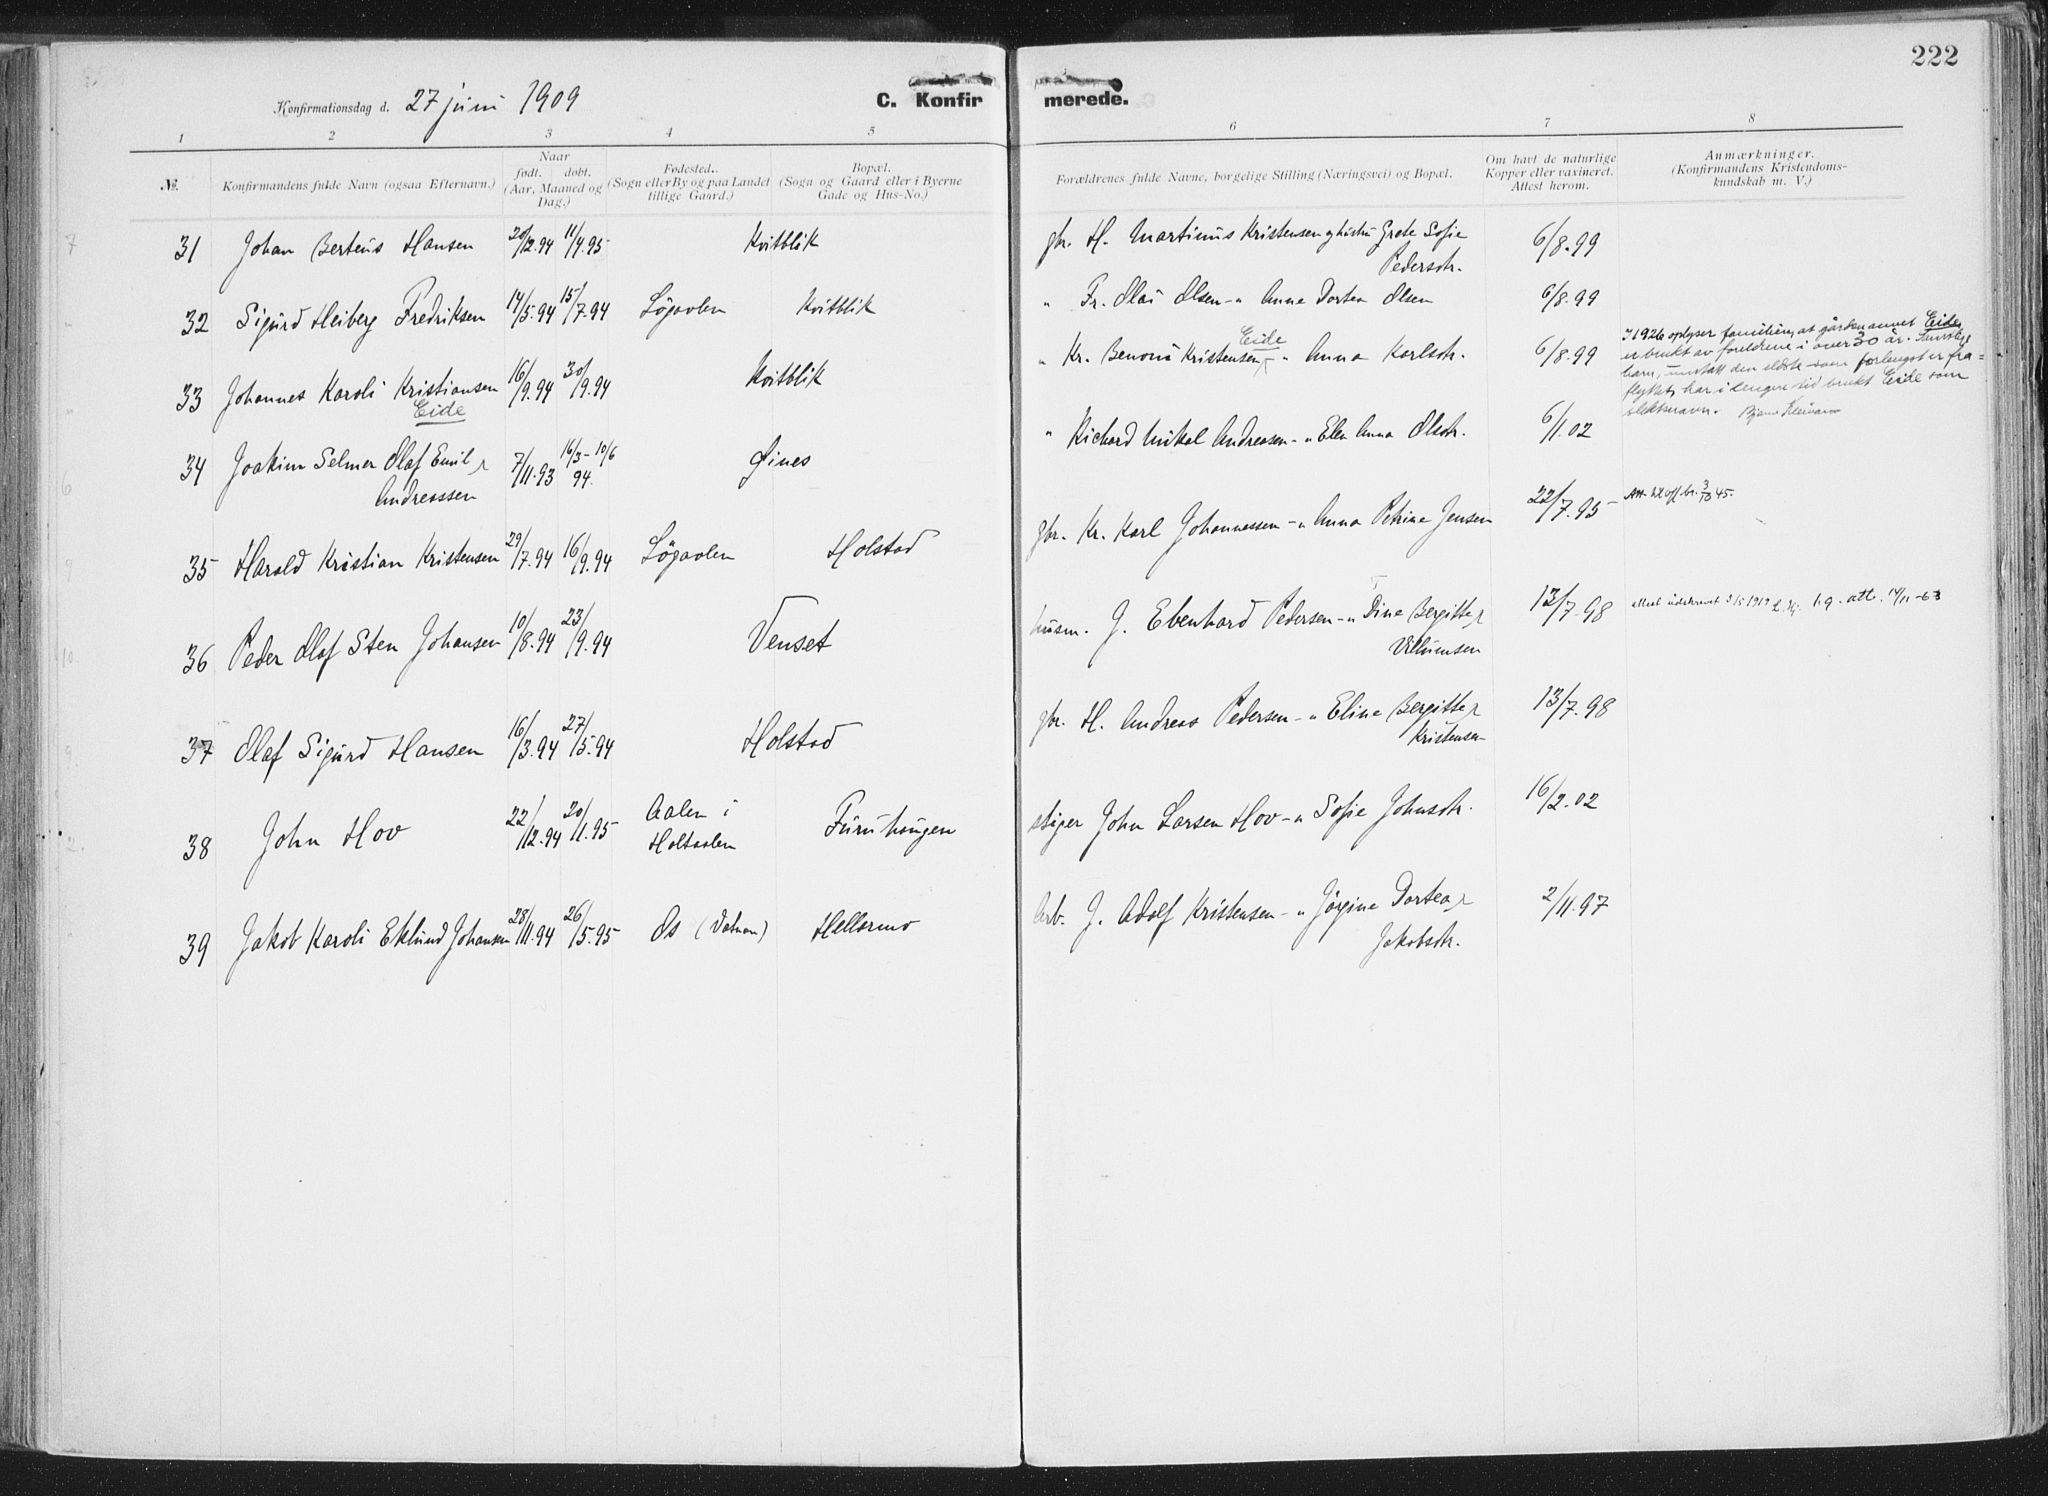 222
Konfirmationsdag d. 27 juni 1909
C. Konfirmerede.
1 2 3 4 5 6 7 8
№.
Konfirmandens fulde Navn (ogsaa Efternavn.)
Naar
født. døbt.
(Aar, Maaned og
Dag.)
Fødested.
(Sogn eller By og paa Landet
tillige Gaard.)
Bopæl.
(Sogn og Gaard eller i Byerne
Gade og Hus-No.)
Forældrenes fulde Navne, borgelige Stilling (Næringsvei) og Bopæl.
Om havt de naturlige
Kopper eller vaxineret.
Attest herom.
Anmærkninger.
(Konfirmandens Kristendoms-
kundskab m. V.)
31 Johan Berteus Hansen 20/12.94 11/4.95 Kvitblik gbr. H. Martinus Kristensen og hustru Grete Sofie 6/8.99
Pedersdtr.
32 Sigurd Heiberg Fredriksen 14/5.94 15/7.94 Løgavlen Kvitblik " Fr. Olai Olsen - " Anna Dortea Olsen 6/8.99
33 Johannes Karoli Kristiansen 16/9.94 30/9.94 Kvitblik " Kr. Benoni Kristensen - " Anna Karlsdtr. 6/8.99
Eide
Eide
I 1926 oplyser familien, at gårdsnavnet Eide
er brukt av foreldrene i over 30 år. Samtlige
barn, unntatt den eldste som forlengst er fra-
flyttet, har i lengere tid brukt Eide som
slektsnavn.
34 Joakim Selmer Olaf Emil 7/11.93 16/3 - 10/6 94. Øines " Richard Mikal Andreasen - " Elen Anna Olsdtr. 6/1.02
Andreassen
35 Harald Kristian Kristensen 29/7.94 16/9.94 Løgavlen Holstad gbr. Kr. Karl Johannessen - " Anna Petrine Jensen 22/7.95
36 Peder Olaf Sten Johansen 10/8.94 23/9.94 Venset husm. J. Ebenhard Pedersen - " Dine Bergitte 13/7.98 attest utskrevet 3/5 1919
Villumsen
37 Olaf Sigurd Hansen 16/3.94 27/5.94 Holstad gbr. H. Andreas Pedersen - " Eline Bergitte 13/7.98
Kristensen
38 John Hov 22/12.94 20/11.95 Aalen i Furuhaugen stiger John Larsen Hov - " Sofie Johnsdtr. 16/2.02
Holtaalen
39 Jakob Karoli Eklund Johansen 28/11.94 26/5.95 Os (Vatnan) Hellarmo Arb. J. Adolf Kristensen - " Jørgine Dortea 2/11.97
Jakobsdtr.